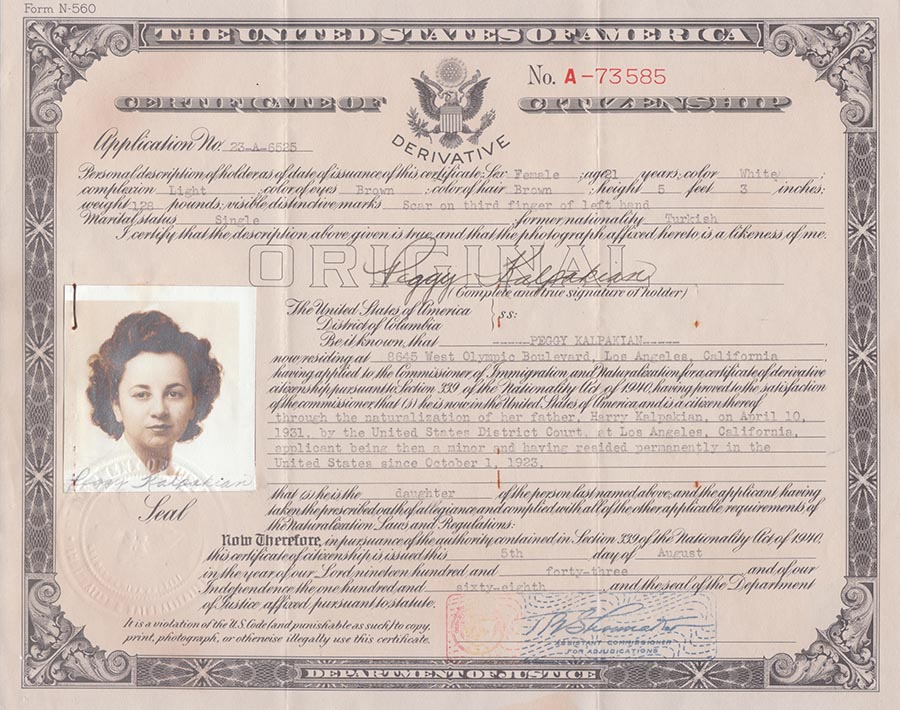 Form N-560
THE UNITED STATES OF AMERICA
No. A-73585
CERTIFICATE OF CITIZENSHIP
DERIVATIVE
Application No. 23-A-6525
Personal description of holder as of date of issuance of this certificate: Sex Female ; age 21 years; color White ;
complexion Light ; color of eyes Brown ; color of hair Brown ; height 5 feet 3 inches;
weight 128 pounds; visible distinctive marks Scar on third finger of left hand
Marital status Single ; former nationality Turkish
I certify that the description above given is true, and that the photograph affixed hereto is a likeness of me.
ORIGINAL
Peggy Kalpakian
(Complete and true signature of holder)
The United States of America
District of Columbia } ss:
Be it known, that -----PEGGY KALPAKIAN-----
now residing at 8645 West Olympic Boulevard, Los Angeles, California
having applied to the Commissioner of Immigration and Naturalization for a certificate of derivative
citizenship pursuant to Section 339 of the Nationality Act of 1940, having proved to the satisfaction
of the commissioner that (s)he is now in the United States of America and is a citizen thereof
through the naturalization of her father, Harry Kalpakian, on April 10,
1931, by the United States District Court, at Los Angeles, California,
applicant being then a minor and having resided permanently in the
United States since October 1, 1923,
Peggy Kalpakian
Seal
that (s)he is the daughter of the person last named above, and the applicant having
taken the prescribed oath of allegiance and complied with all of the other applicable requirements of
the Naturalization Laws and Regulations:
Now Therefore, in pursuance of the authority contained in Section 339 of the Nationality Act of 1940,
this certificate of citizenship is issued this 5th day of August
in the year of our Lord nineteen hundred and forty-three and of our
Independence the one hundred and sixty-eighth , and the seal of the Department
of Justice affixed pursuant to statute.
It is a violation of the U.S. Code (and punishable as such) to copy,
print, photograph, or otherwise illegally use this certificate.
ASSISTANT COMMISSIONER
FOR ADJUDICATIONS
DEPARTMENT OF JUSTICE